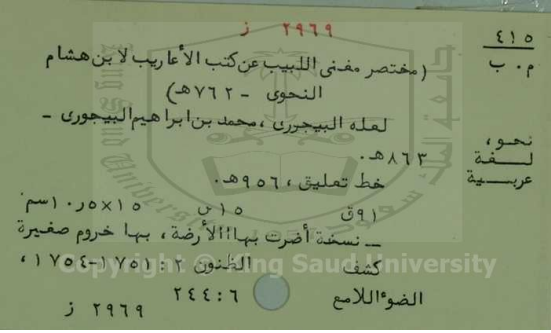 ٢٩٦٩ ز
٤١٥
م . ب
(مختصر مغنى اللبيب عن كتب الأعاريب لابن هشام
النحوى - ٧٦٢هـ)
لعله البيجورى ، محمد بن ابراهيم البيجورى -
٨٦٣هـ.
نحو،
لغة
عربية
خط تعليق ، ٩٥٦هـ.
٩١ق ١٥س ١٥×٥ر١٠سم
ــ نسخة أضرت بها الأرضة ، بها خروم صغيرة
كشف الظنون ٢ : ١٧٥١-١٧٥٤ ،
الضوء اللامع ٦ : ٢٤٤
٢٩٦٩ ز
Copyright © King Saud University